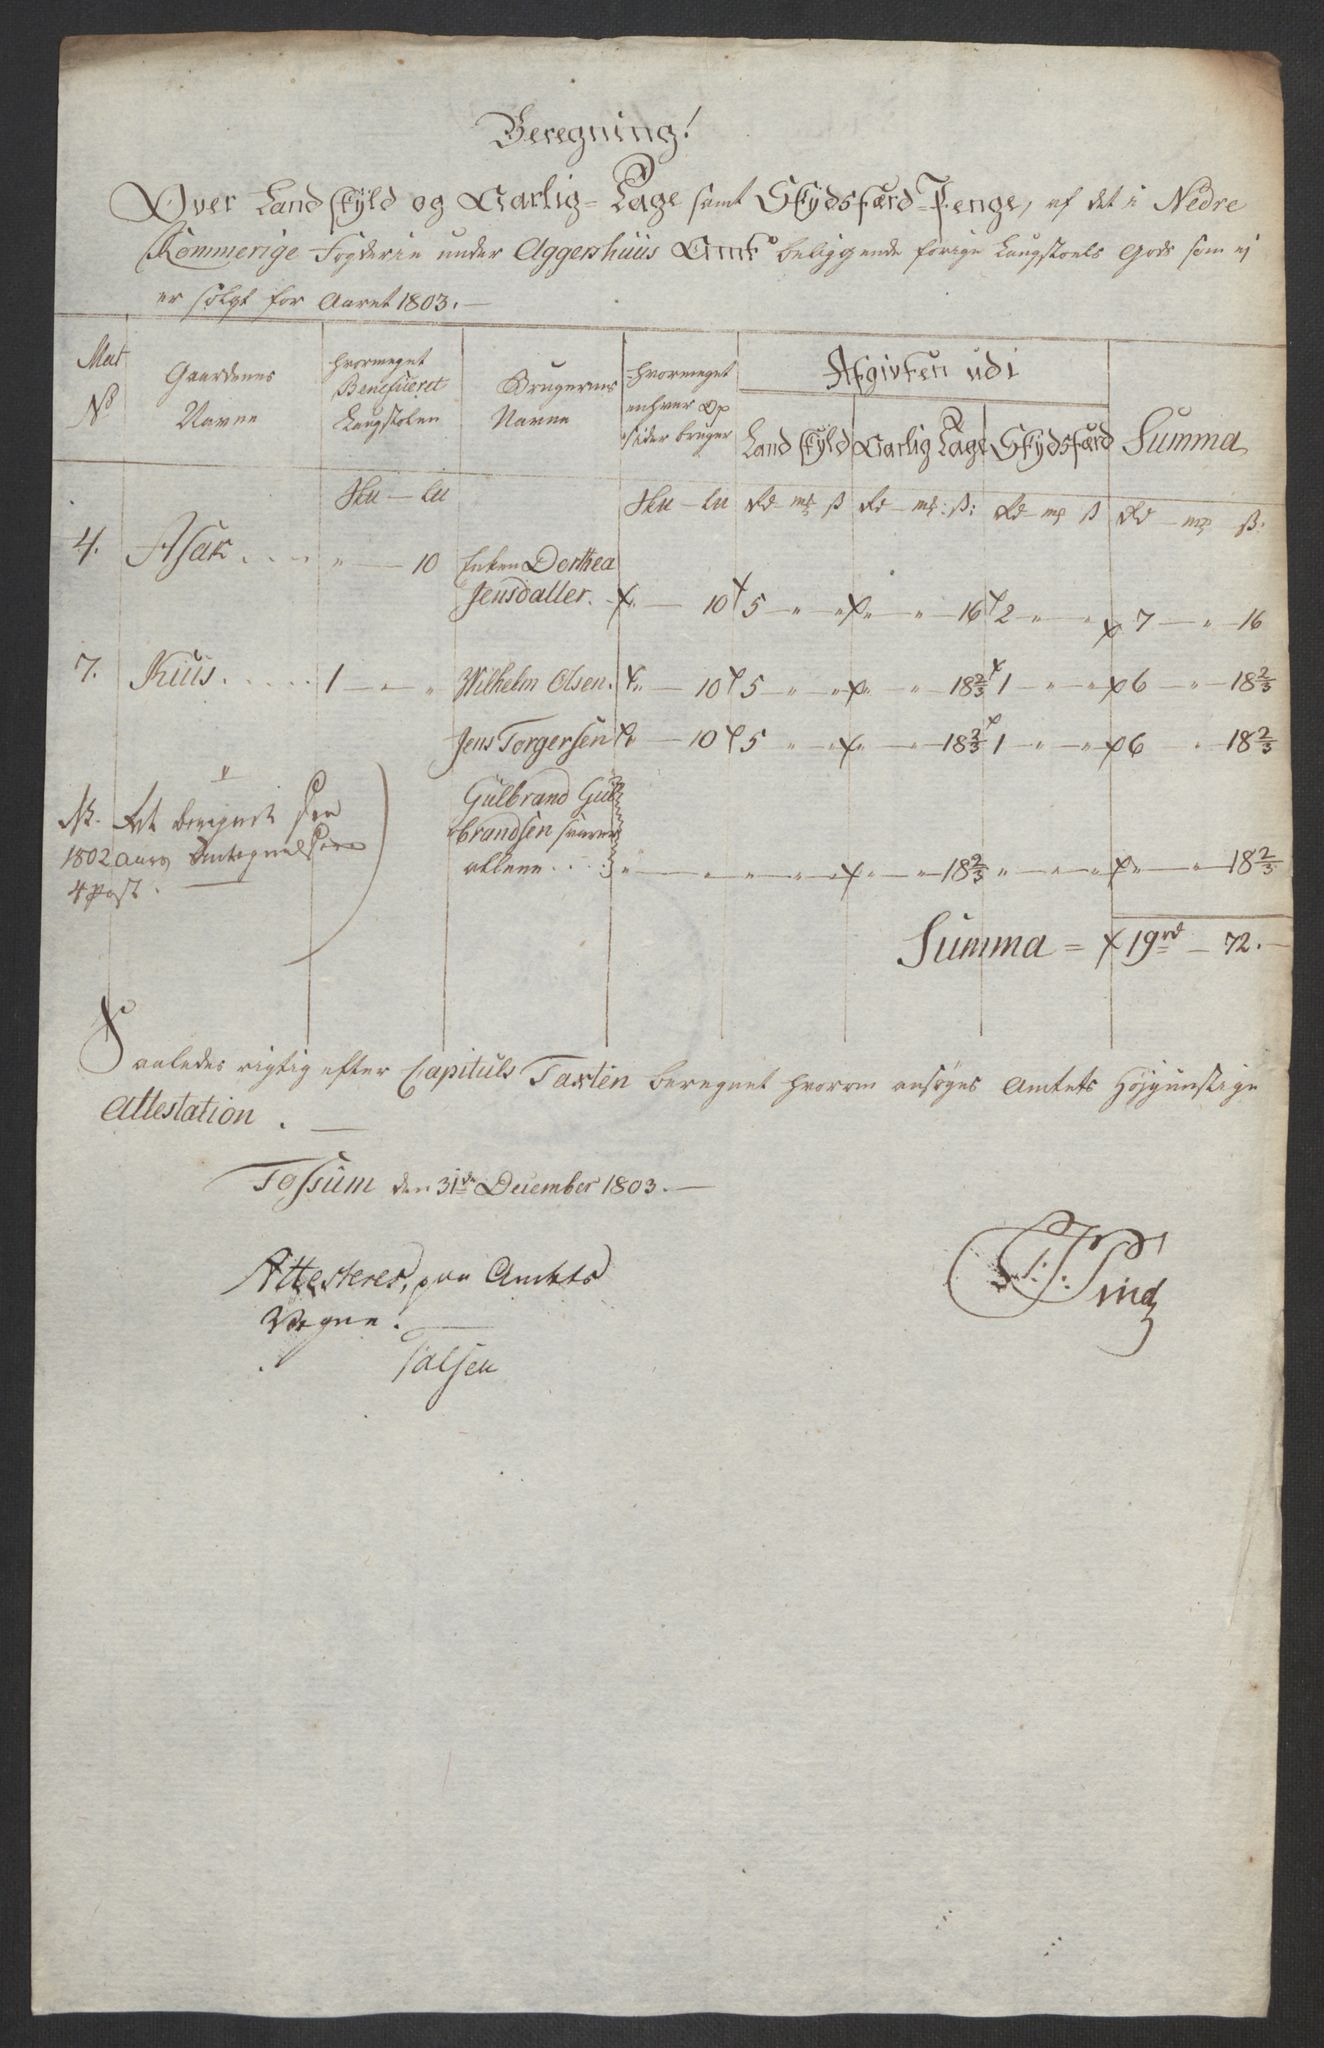 Beregning!
Over Landskyld og Aarlig-Tage samt Skydsfærd-Penge, af det i Nedre
Rommerige Fogderie under Aggershuus Amt beliggende forige Laugstoels Gods som ej
er solgt for Aaret 1803.—
Mat No | Gaardenes Navne | Hvormeget Beneficeret Laugstolen | Brugernes Navne | Hvormeget enhver Opsider bruger | Afgivten udi | Summa
Landskyld | Aarlig Tage | Skydsfærd
Sku — Lu | Sku — Lu | Rd — mk ß | Rd — mk: ß: | Rd — mk ß | Rd — mk ß:
4. Asak . . . . " — 10 Enken Dorthea
Jensdatter. " — 10 5 " " " " 16 2 " " 7 — " — 16
7. Kuus . . . . . 1 — " — " Wilhelm Olsen. " — 10 5 " " " " 18 2/3 1 " " 6 " 18 2/3
Jens Torgersen " — 10 5 " " " " 18 2/3 1 " " 6 " 18 2/3
NB. Tet beregnet
1802 Aars
4 Post. —
Gulbrand Gul-
brandsen svarer
allene . . . " — " " " " " " 18 2/3 " " " " — " — 18 2/3
Summa = 19 rd — 72.—
Saaledes rigtig efter Capituls Taxten beregnet hvorom ansøges Amtets Højgunstige
Attestation . —
Tossum den 31de December 1803. —
Attesteres, paa Amtets
Vegne.